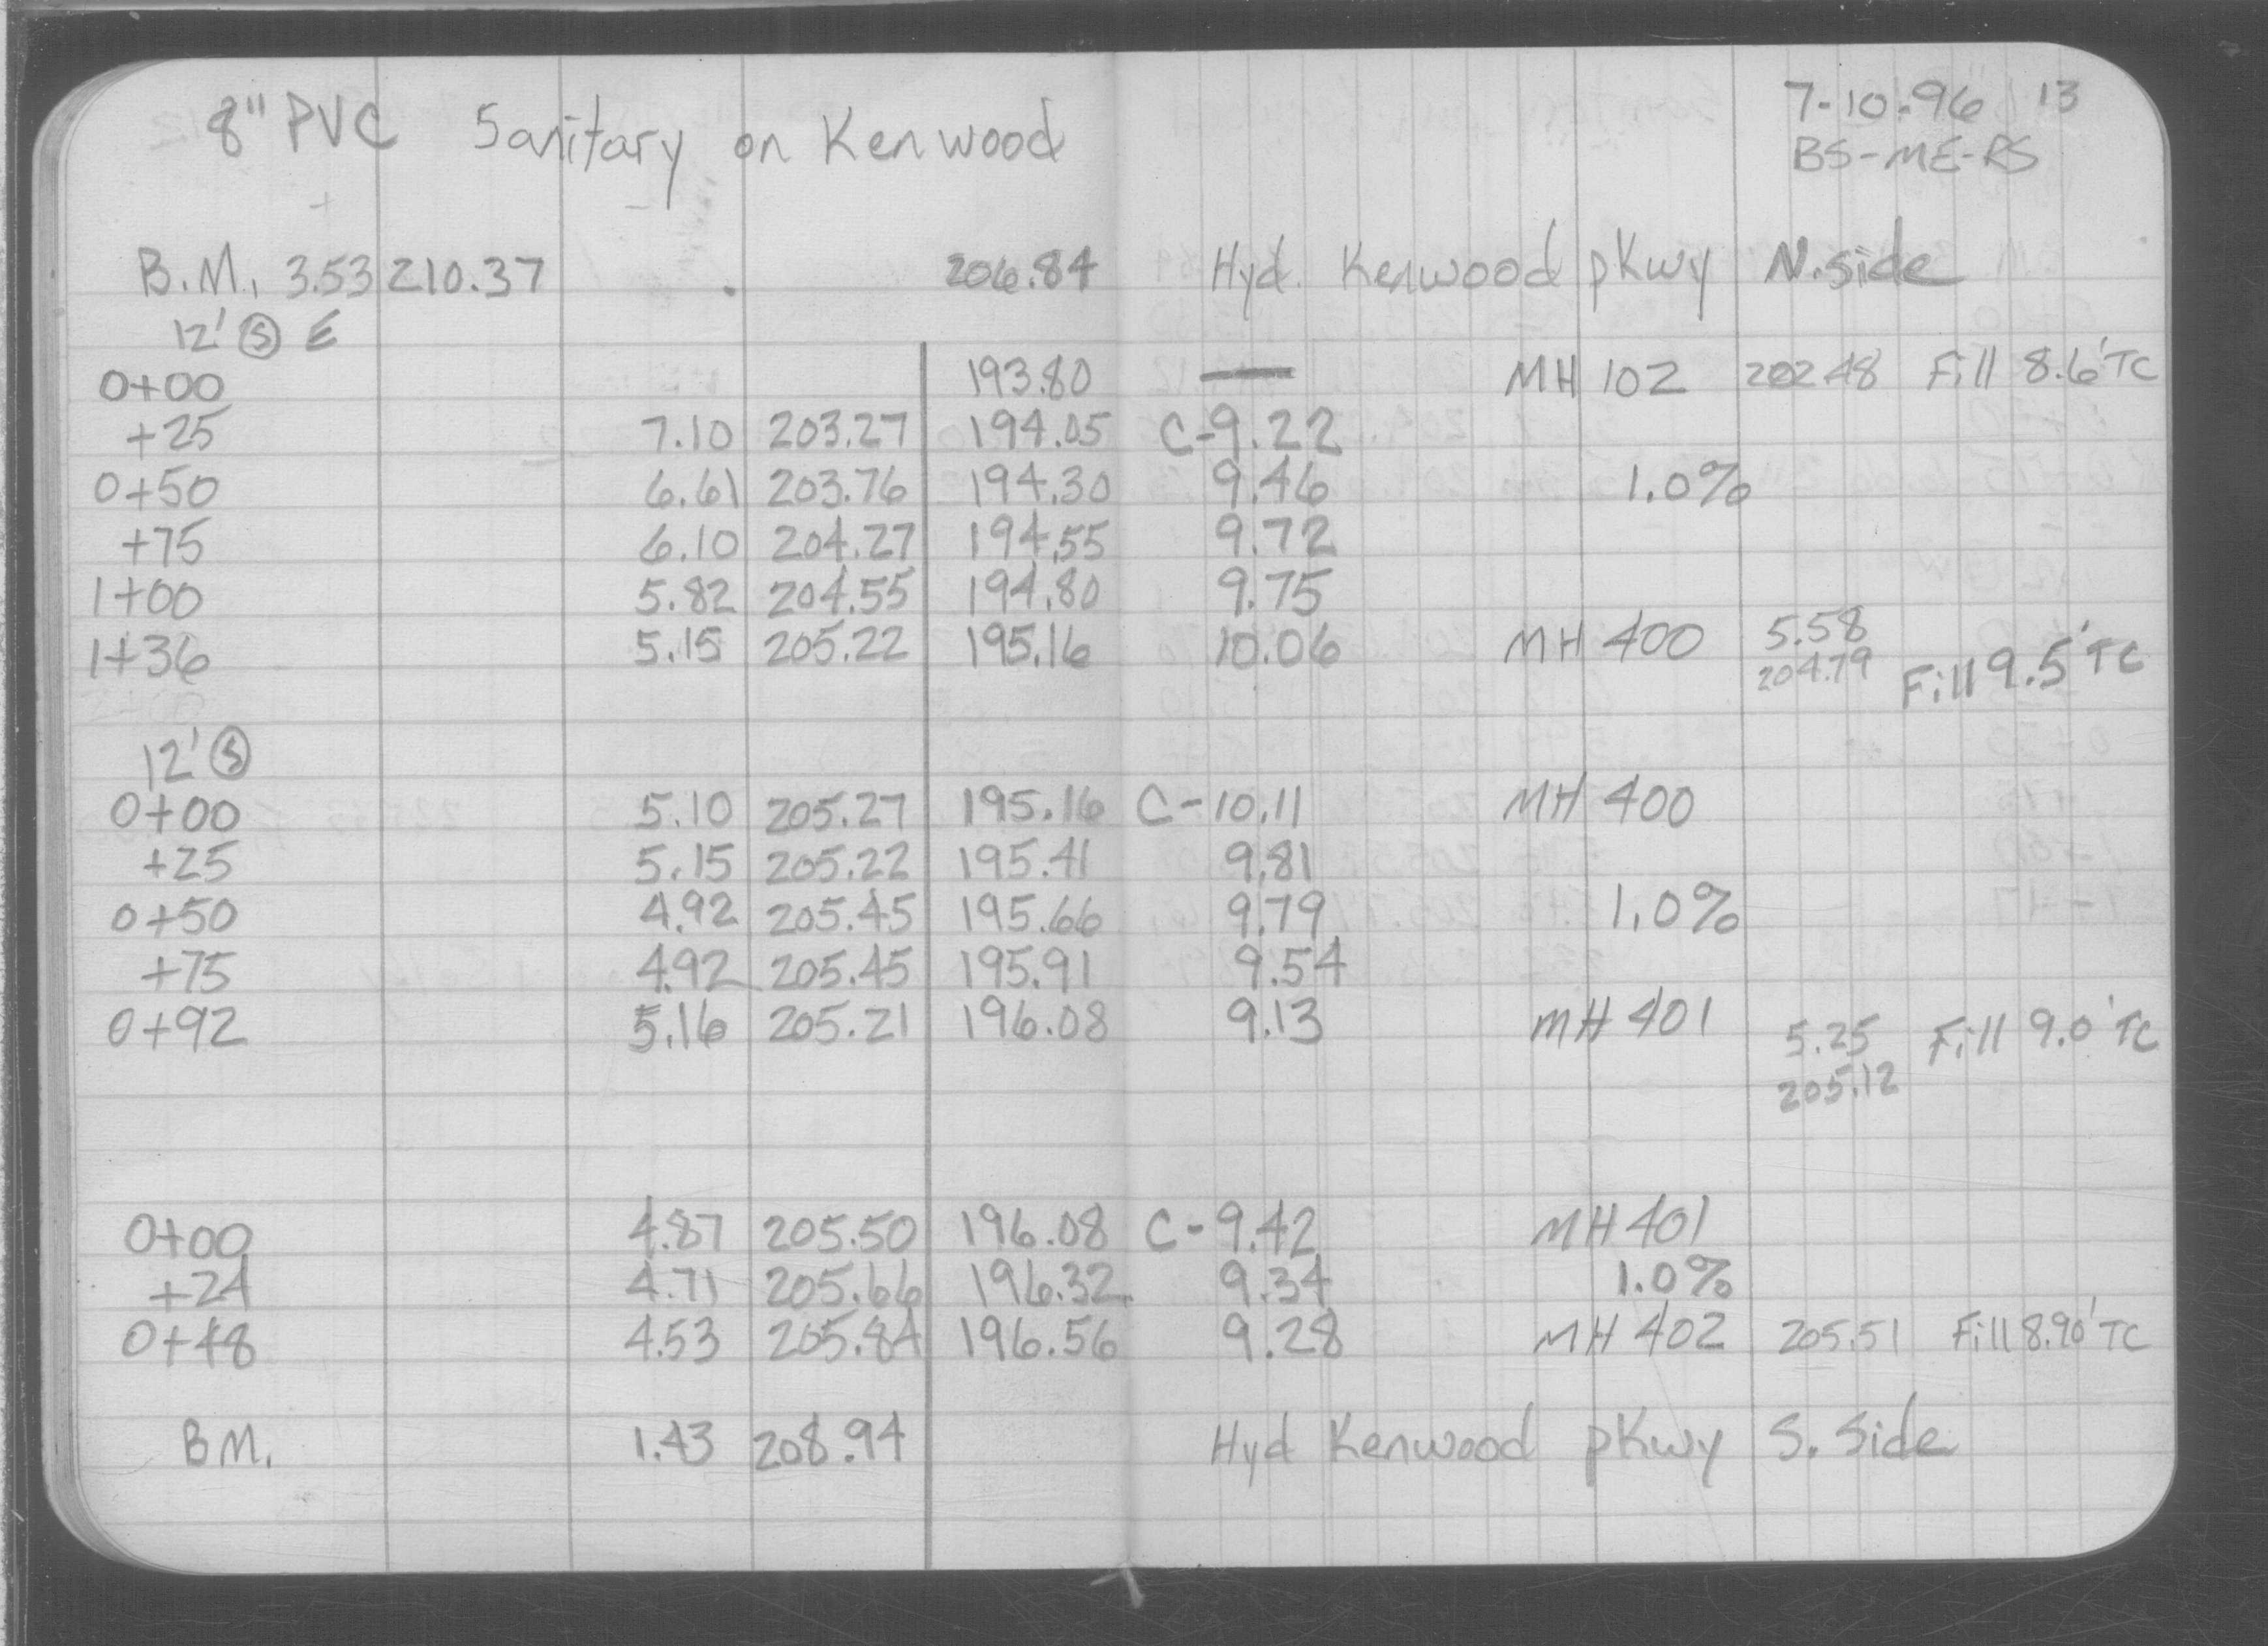 7-10-96 13
8" PVC Sanitary on Kenwood
BS-ME-RS
+ -
B.M. 3.53 210.37 206.84 Hyd. Kenwood pkwy N.side
12' Ⓢ E
0+00 193.80 — MH 102 202.48 Fill 8.6' TC
+25 7.10 203.27 194.05 C-9.22
0+50 6.61 203.76 194.30 9.46 1.0%
+75 6.10 204.27 194.55 9.72
1+00 5.82 204.55 194.80 9.75
1+36 5.15 205.22 195.16 10.06 MH 400 5.58
204.79 Fill 9.5' TC
12' Ⓢ
0+00 5.10 205.27 195.16 C-10.11 MH 400
+25 5.15 205.22 195.41 9.81
0+50 4.92 205.45 195.66 9.79 1.0%
+75 4.92 205.45 195.91 9.54
0+92 5.16 205.21 196.08 9.13 MH 401 5.25 Fill 9.0' TC
205.12
0+00 4.87 205.50 196.08 C-9.42 MH 401
+24 4.71 205.66 196.32 9.34 1.0%
0+48 4.53 205.84 196.56 9.28 MH 402 205.51 Fill 8.90' TC
B.M. 1.43 208.94 Hyd Kenwood pkwy S. Side